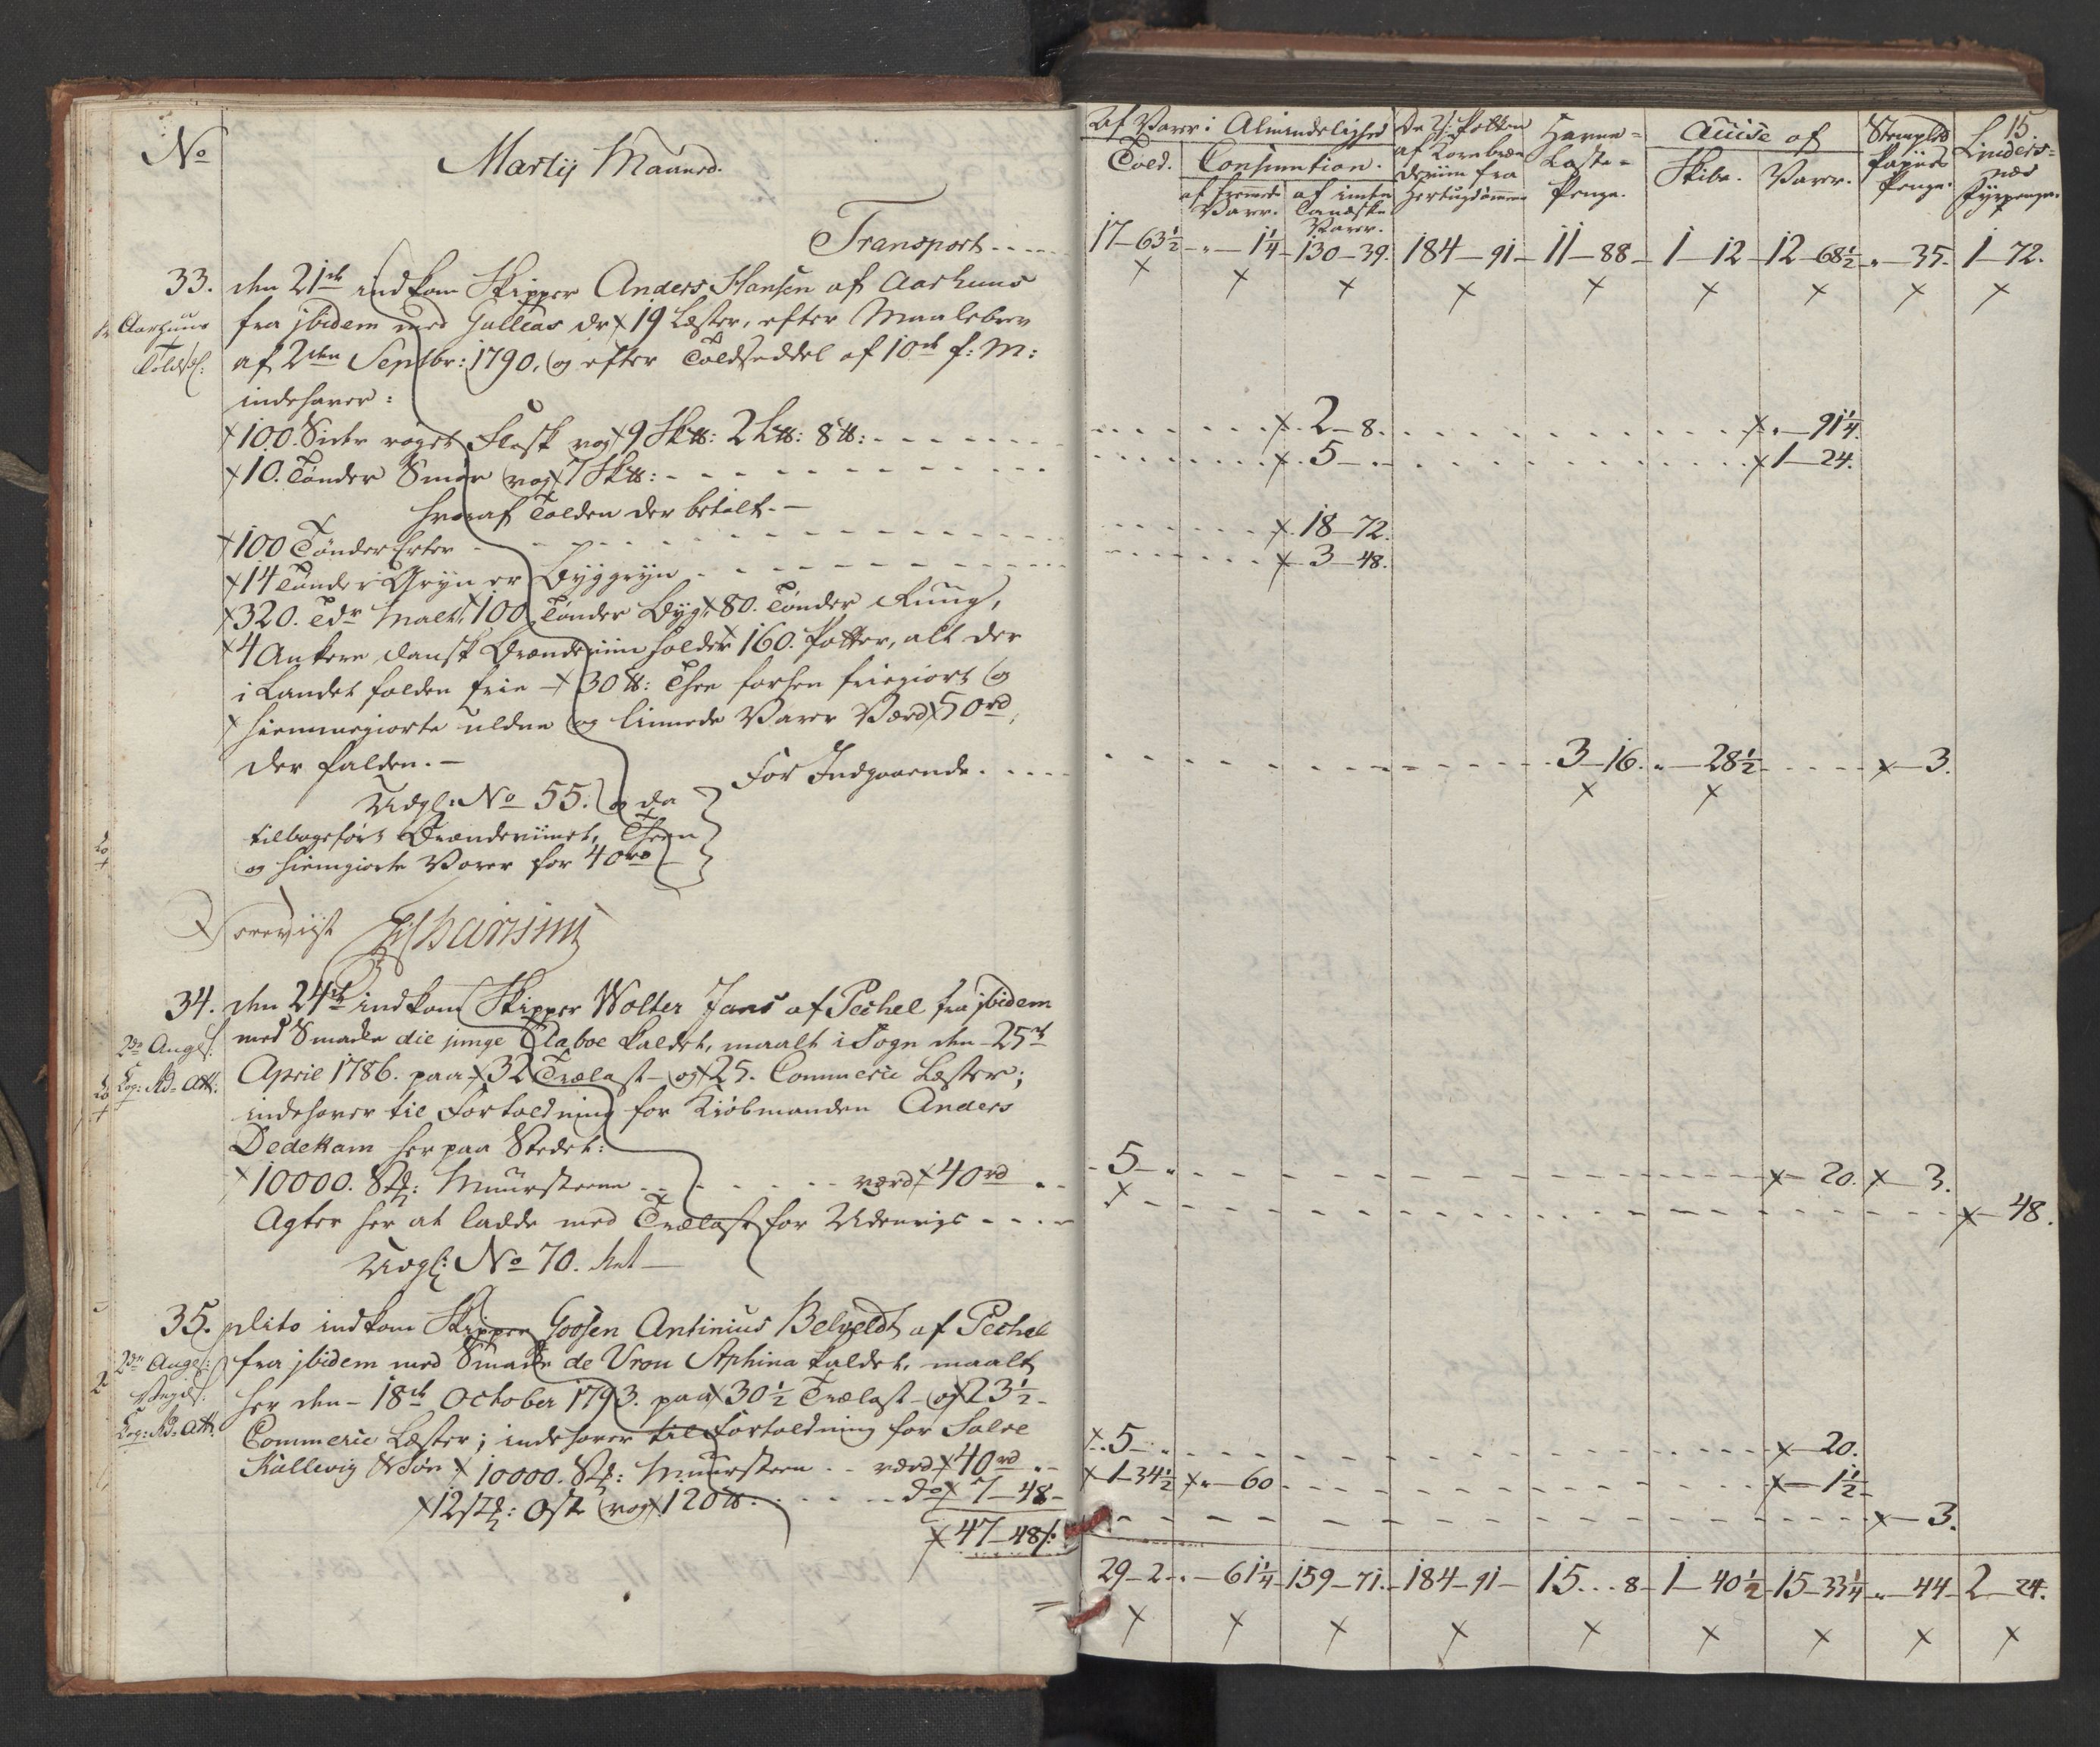 No
Martij Maaned.
Transport
33. den 21de indkom Skipper Anders Hansen af Aarhuus
Aarhuus
fra jbidem med Gallias dr. 19 Læster, efter Maalebrev
Toldsl:
af 2den Septbr: 1790, og efter Toldseddel af 10de f: M:
indehaver:
100. Sider røget Flesk vog 9 Sk℔: 2 L℔: 8 ℔:
10. Tønder Smør vog 7 Sk℔:
hvoraf Tolden der betalt.
100 Tønder Erter
14 Tønder Gryn er Byggryn
320. Tdr Malt, 100 Tønder Byg, 80. Tønder Ruug,
4 Ankere dansk Brændeviin holder 160. Potter, alt der
i Landet falden frie 30 ℔: Thee forhen friegiort og
hiemmegiorte uldne og linnede Varer Værd 50 rd,
der falden.
For Indgaaende.
Udgl: No 55. og da
tilbageført Brændeviinet, Theen
og hiemgiorte Varer for 40 rd
Foreviist
34. den 24de indkom Skipper Wolter Jans af Pechel fra jbidem
2de Angl:
med Smacke die junge Claboe kaldet, maalt i Sogn den 25de
Cop: Rd. Att:
April 1786. paa 32 Trælast og 25. Commerce Læster;
indehaver til Fortoldning for Kiøbmanden Anders
Dedekam her paa Stedet:
10000. Stk: Muursteene værd 40 rd
Agter her at ladde med Trælast for Udenrigs
Udgl: No 70.
35. Dito indkom Skipper Goosen Antinius Belveldt af Pechel
2de Angl:
fra jbidem med Smacke de Vrou Aphina kaldet, maalt
her den 18de October 1793. paa 30½ Trælast og 23½
Cop: Rd. Att:
Commerce Læster; indehaver til Fortoldning for Salve
Kallevig & Søn 10000. Stk: Muursteen værd 40 rd
12 stk: Oste vog 120 ℔. do 7–48
47–48 ß:
15.
Af Varer i Almindelighed
Told. Consumtion.
af fremmede Varer. af indenlandske Varer.
af Kornbrændeviin fra Hertugdømmene
Havne- Laste- Penge.
Accise af
Skibe. Varer.
Stemplet Papiirs Penge.
Lindersnæs Fyrpenge.
17–63½ „–1¼ 130–39. 184–91 11–88 1–12 12–68½ „–35. 1–72.
2–8. „–91¼.
5–„ 1–24.
18–72.
3–48.
3–16. „–28½ 3.
5–„ 20. 3.
48.
5–„ 20.
1–34½ „–60 1½
3.
29–2 „–61¼ 159–71. 184–91 15–8 1–40½ 15–33¼ „–44 2–24.